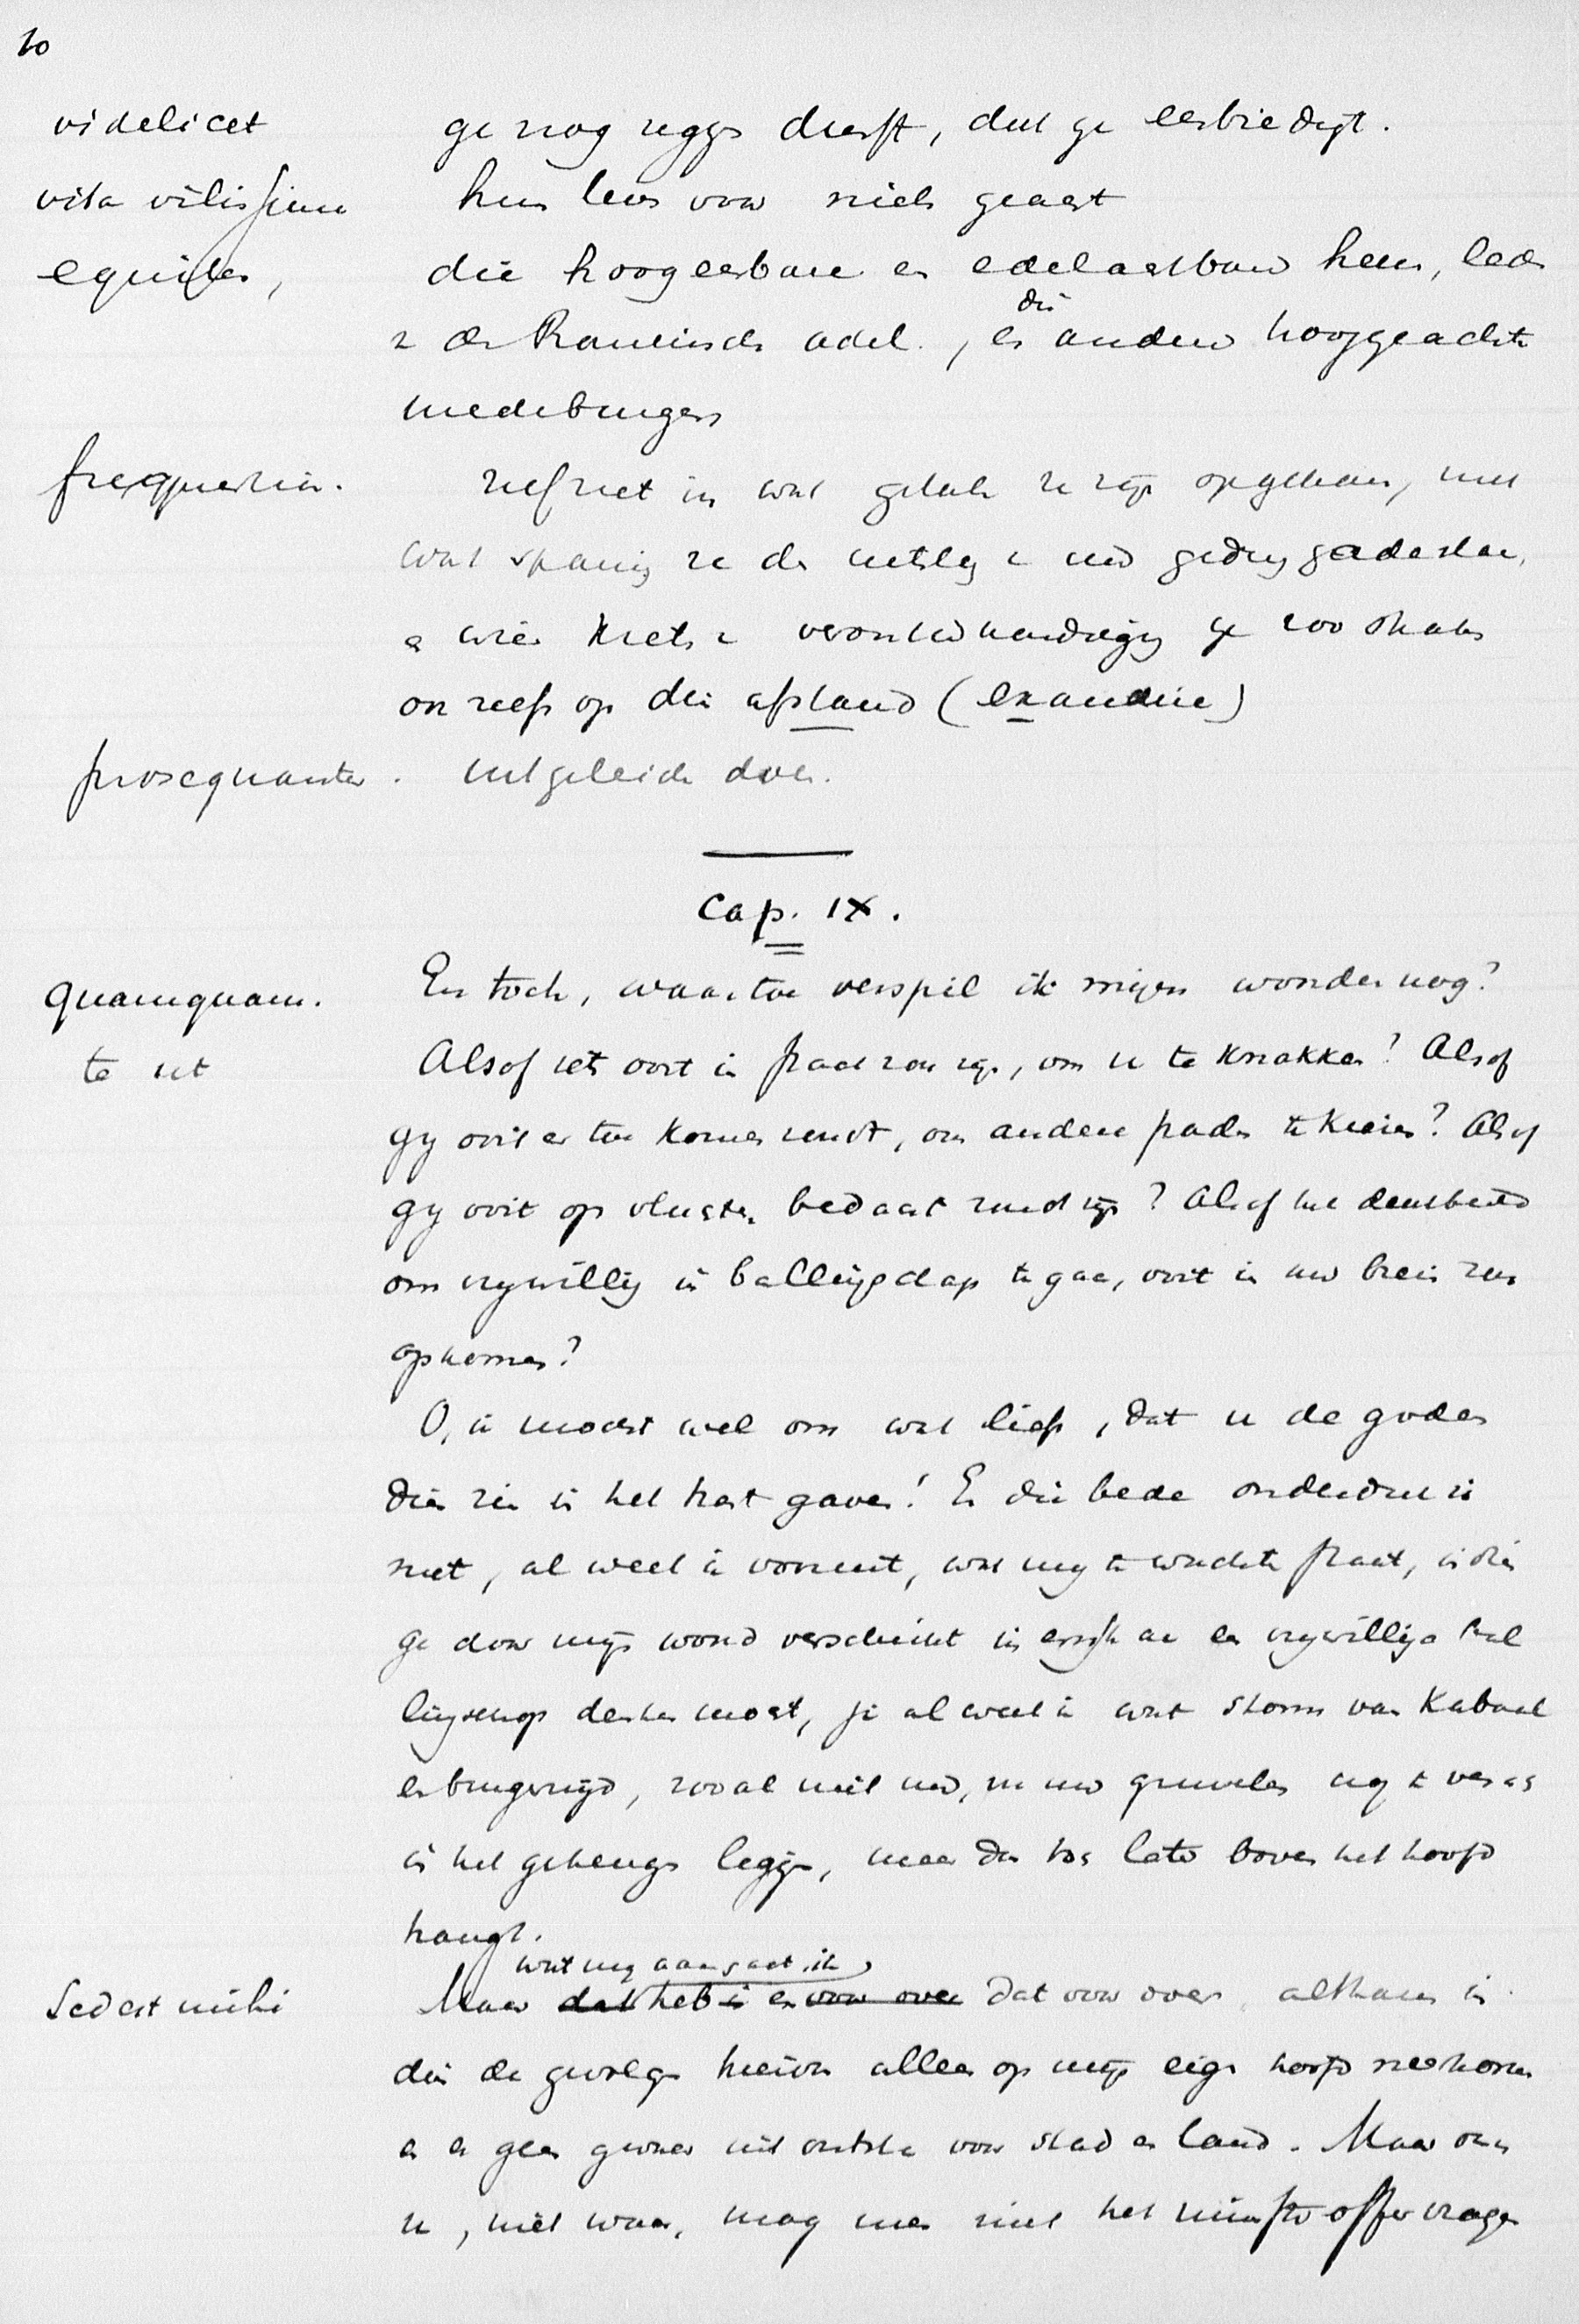 10
videlicet ge nog zeggen durft, dat ge eerbiedigt.
vita vilissima hun leven voor niets geacht
equites, die hoogeerbare en edelachtbare heeren, leden
v. den Romeinschen adel, en die andere hooggeachte
medeburgers
frequentia. zelf niet in wat getale ze zijn opgekomen, met
wat spanning ze de uitslag v. uw gedrag gadeslaan,
en wier kreten v. verontwaardiging ge zoo straks
on zelfs op dien afstand (exaudire)
prosequantur. uitgeleide doen.
Cap. IX.
quamquam. En toch, waartoe verspil ik mijn woorden nog?
te ut Alsof iets ooit in staat zou zijn, om u te knakken? Alsof
gy ooit er toe komen zoudt, om andere paden te kiezen? Alsof
gy ooit op vluchten bedacht zoudt zijn? Alsof het denkbeeld
om vrywillig in ballingschap te gaan, ooit in uw brein zou
opkomen?
O, ik mocht wel om wat liefs, dat u de goden
dien zin in het hart gaven! En die bede onderdruk ik
niet, al weet ik vooruit, wat my te wachten staat, indien
ge door mijn woord verschrikt in ernst aan een vrywillige bal
lingschap denken mocht, ja al weet ik wat storm van kabaal
en bruger nijd, zoo al niet nu, nu uw gruwelen nog te versch
in het geheugen liggen, maar dan toch later boven het hoofd
hangt.
wat my aangaat, ik
Sed est mihi Maar dat heb ik er voor over dat voor over, althans in
dien de gevolgen hiervan alleen op mijn eigen hoofd neerkomen
en er geen gevaar uit ontsta voor stad en land. Maar van
u, niet waar, mag men niet het minste offer vragen